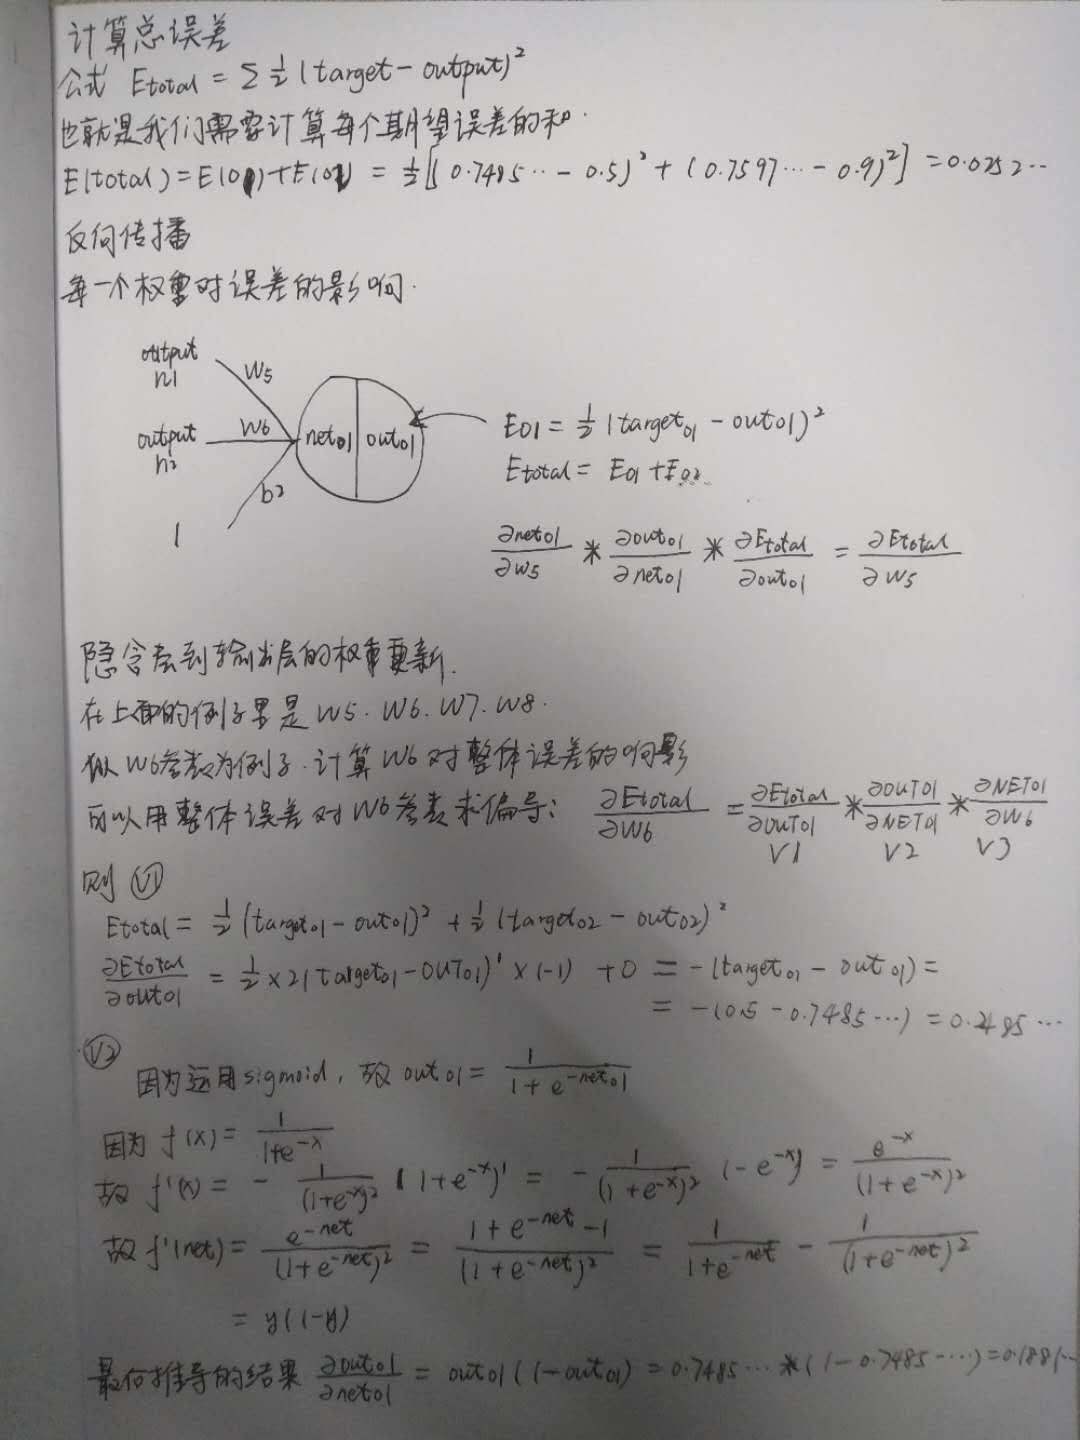 计算总误差
公式 Etotal = Σ ½ (target - output)²
也就是我们需要计算每个期望误差的和.
E(total) = E(01) + E(02) = ½[(0.7485… - 0.5)² + (0.7597… - 0.9)²] = 0.0252…
反向传播
每一个权重对误差的影响.
output n1 w5
output n2 w6 net01 out01
1 b2
E01 = ½ (target01 - out01)²
Etotal = E01 + E02
∂net01/∂w5 * ∂out01/∂net01 * ∂Etotal/∂out01 = ∂Etotal/∂w5
隐含层到输出层的权重更新.
在上面的例子里是 w5. w6. w7. w8.
以 w6参数为例子. 计算 w6 对整体误差的响影
可以用整体误差对 w6 参数求偏导: ∂Etotal/∂w6 = ∂Etotal/∂OUT01 * ∂OUT01/∂NET01 * ∂NET01/∂w6
V1 V2 V3
则 V1
Etotal = ½ (target01 - out01)² + ½ (target02 - out02)²
∂Etotal/∂out01 = ½ × 2(target01 - OUT01)¹ × (-1) + 0 = -(target01 - out01) =
= -(0.5 - 0.7485…) = 0.2485…
V2
因为运用sigmoid, 故 out01 = 1/(1 + e^-net01)
因为 f(x) = 1/(1+e^-x)
故 f'(x) = - 1/(1+e^-x)² (1+e^-x)' = - 1/(1+e^-x)² (-e^-x) = e^-x/(1+e^-x)²
故 f'(net) = e^-net/(1+e^-net)² = (1+e^-net-1)/(1+e^-net)² = 1/(1+e^-net) - 1/(1+e^-net)²
= y(1-y)
最后推导的结果 ∂out01/∂net01 = out01(1-out01) = 0.7485… * (1-0.7485…) = 0.1881…